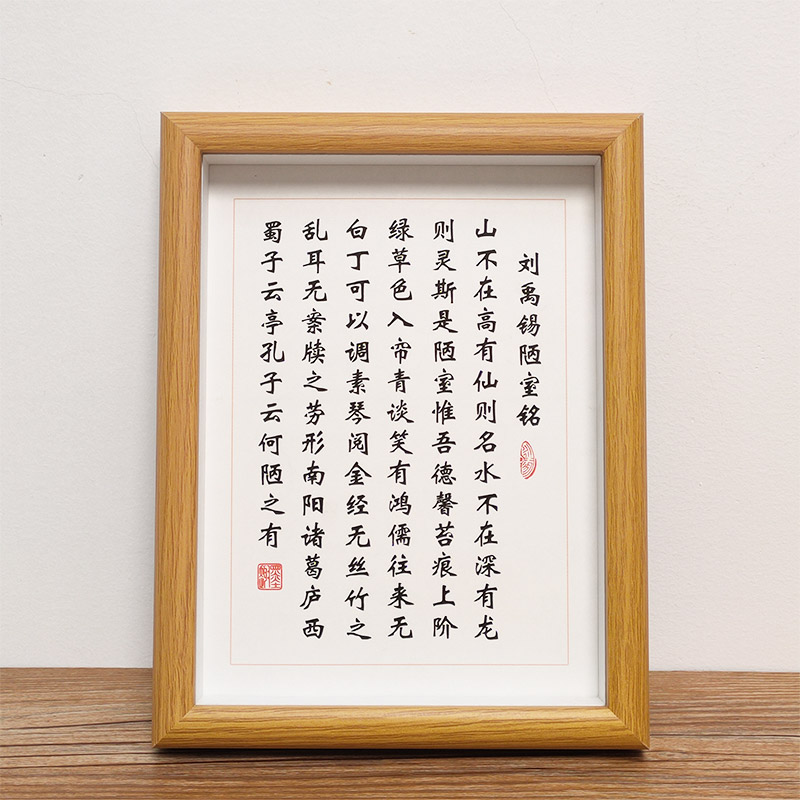 刘禹锡陋室铭
山不在高有仙则名水不在深有龙
则灵斯是陋室惟吾德馨苔痕上阶
绿草色入帘青谈笑有鸿儒往来无
白丁可以调素琴阅金经无丝竹之
乱耳无案牍之劳形南阳诸葛庐西
蜀子云亭孔子云何陋之有